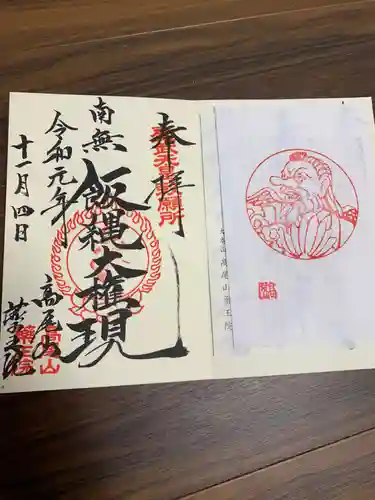 奉拝
南無
飯縄大権現
令和元年
十一月四日
高尾山
薬王院
高尾山薬王院